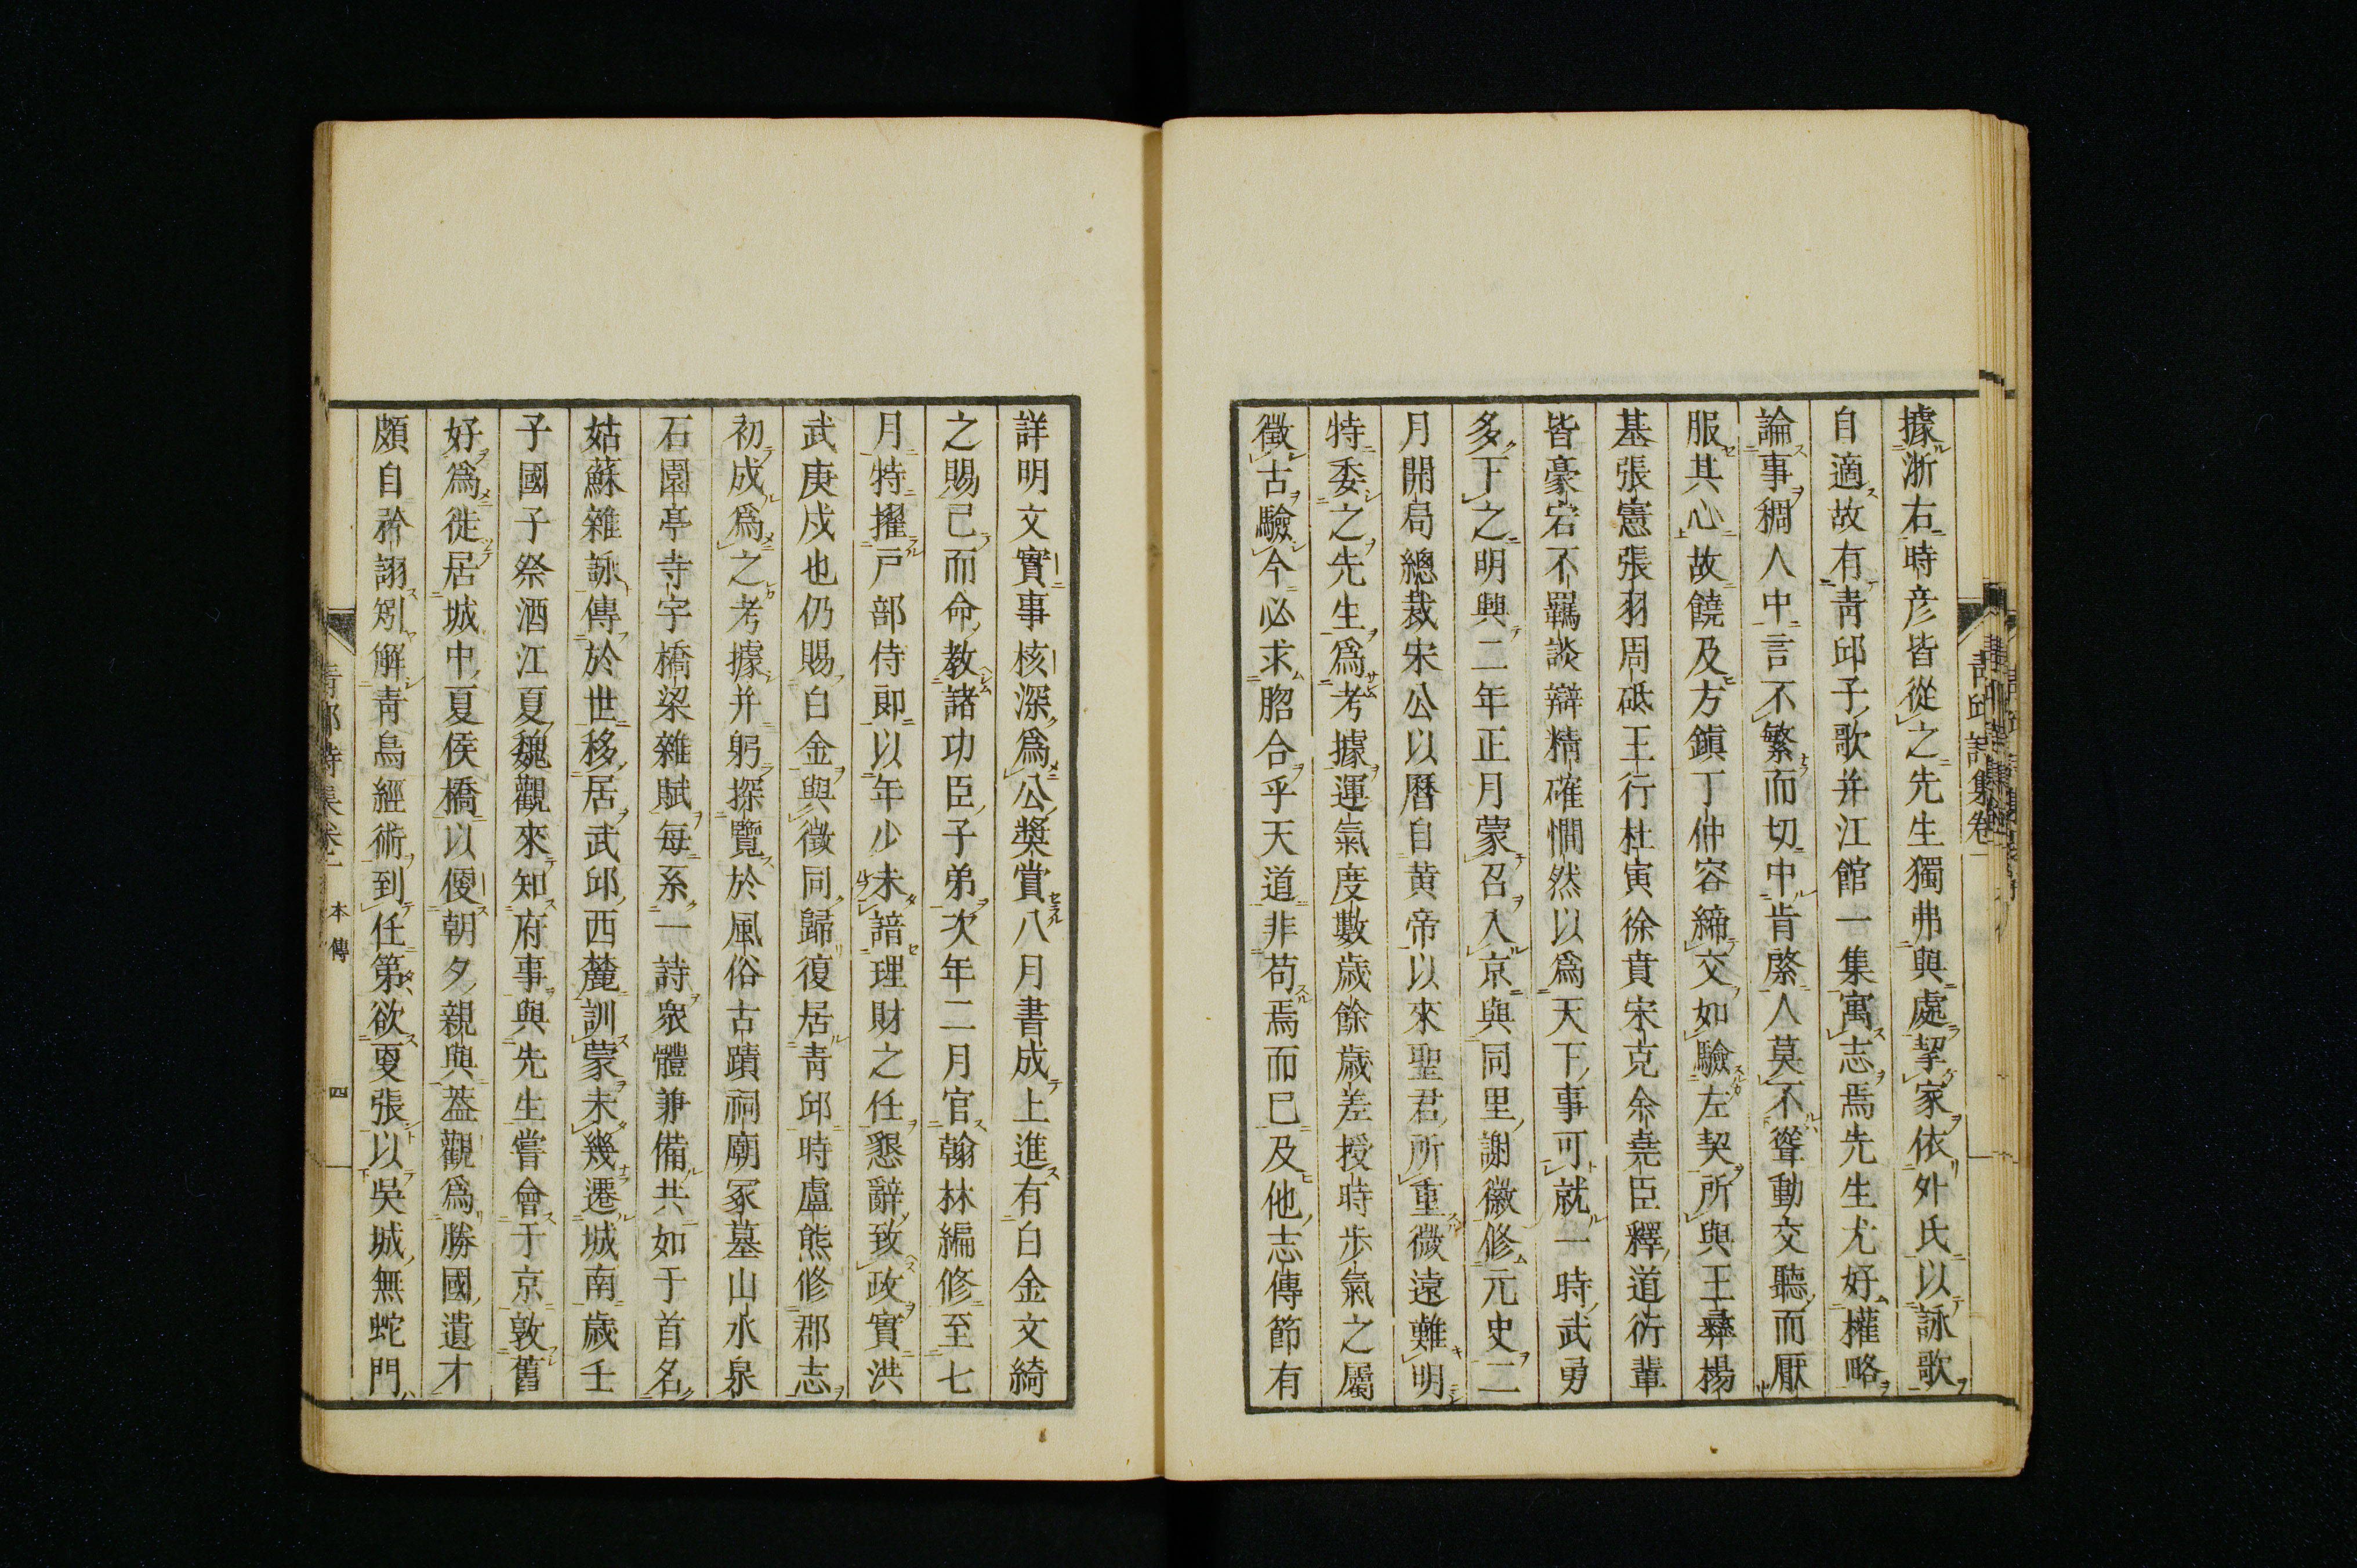 據浙右時彦皆從之先生獨弗與處挈家依外氏以詠歌
自適故有靑邱子歌并江館一集寓志焉先生尤好權略
論事稠人中言不繁而切中肯綮人莫不聳動交聽而厭
服其心故饒及方鎭丁仲容締交如驗左契所與王彝楊
基張憲張羽周砥王行杜寅徐賁宋克余堯臣釋道衍輩
皆豪宕不羈談辯精確憪然以爲天下事可就一時武勇
多下之明興二年正月蒙召入京與同里謝徽修元史二
月開局總裁宋公以曆自黄帝以來聖君所重微遠難明
特委之先生爲考據運氣度數歲餘歲差授時步氣之屬
徵古驗今必求脗合乎天道非苟焉而已及他志傳節有
詳明文實事核深爲公奬賞八月書成上進有白金文綺
之賜已而命教諸功臣子弟次年二月官翰林編修至七
月特擢戸部侍郎以年少未諳理財之任懇辭致政實洪
武庚戌也仍賜白金與徵同歸復居靑邱時盧熊修郡志
初成爲之考據并躬探覽於風俗古蹟祠廟冢墓山水泉
石園亭寺宇橋梁雜賦每系一詩衆體兼備共如于首名
姑蘇雜詠傳於世移居武邱西麓訓蒙未幾遷城南歲壬
子國子祭酒江夏魏觀來知府事與先生嘗會于京敦舊
好爲徙居城中夏侯橋以便朝夕親與葢觀爲勝國遺才
頗自矜詡矧解靑烏經術到任第欲更張以吳城無蛇門
青邱詩集卷一
本傳
四